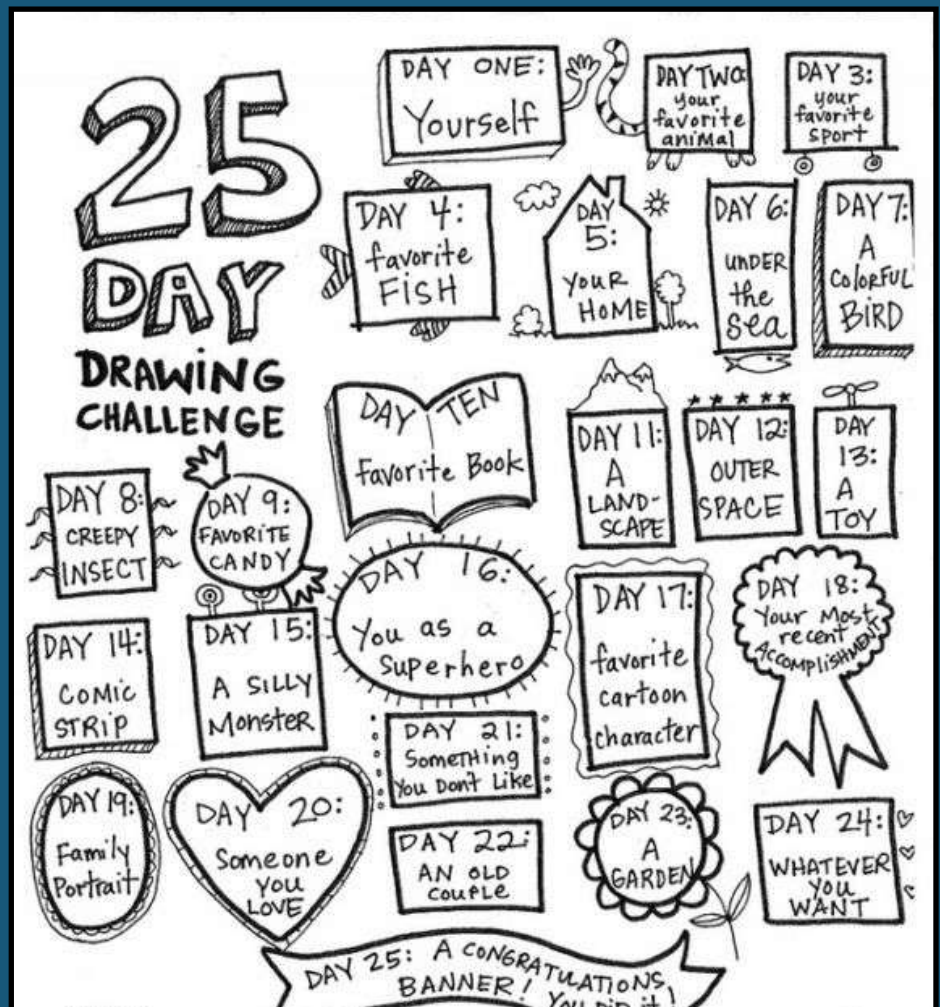 25
DAY
DRAWING
CHALLENGE
DAY ONE:
Yourself
DAY TWO:
your
favorite
animal
DAY 3:
your
favorite
sport
DAY 4:
favorite
FISH
DAY
5:
YOUR
HOME
DAY 6:
UNDER
the
sea
DAY 7:
A
COLORFUL
BIRD
DAY 8:
CREEPY
INSECT
DAY 9:
FAVORITE
CANDY
DAY TEN
Favorite Book
DAY 11:
A
LAND-
SCAPE
DAY 12:
OUTER
SPACE
DAY
13:
A
TOY
DAY 14:
COMIC
STRIP
DAY 15:
A SILLY
MONSTER
DAY 16:
You as a
Superhero
DAY 17:
favorite
cartoon
character
DAY 18:
Your Most
recent
ACCOMPLISHMENT
DAY 19:
Family
Portrait
DAY 20:
Someone
YOU
LOVE
DAY 21:
SOMETHING
You Don't Like
DAY 22:
AN OLD
COUPLE
DAY 23:
A
GARDEN
DAY 24:
WHATEVER
YOU
WANT
DAY 25: A CONGRATULATIONS
BANNER! YOU DID it!